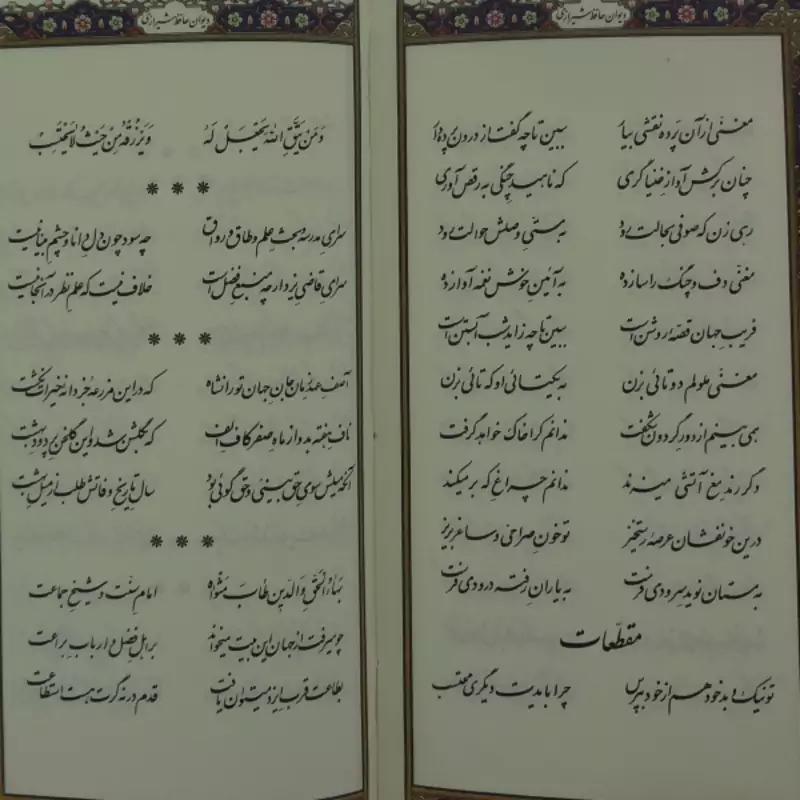 دیوان حافظ شیرازی
مغنّی از آن پرده نقشی بیار ببین تا چه گفت از درون پرده‌دار
چنان برکش آواز خنیاگری که ناهید چنگی به رقص آوری
رهی زن که صوفی بحالت رود به مستیِ وصلش حوالت رود
مغنّی دف و چنگ را ساز ده به آئین خوش نغمه آواز ده
فریب جهان قصّهٔ روشن است ببین تا چه زاید شب آبستن است
مغنّی ملولم دوتائی بزن به یکتائی او که تائی بزن
همی بینم از دور گردون شگفت ندانم کرا خاک خواهد گرفت
دگر رند مغ آتشی میزند ندانم چراغ که بر میکند
درین خونفشان عرصهٔ رستخیز تو خون صراحی و ساغر بریز
به مستان نوید سرودی فرست به یاران رفته درودی فرست
مقطّعات
تو نیک و بد خود هم از خود بپرس چرا بایدت دیگری محتسب
دیوان حافظ شیرازی
وَ مَن یَتَّقِ اللهَ یَجعَل لَهُ وَ یَرزُقهُ مِن حَیثُ لا یَحتَسِب
***
سرای مدرسه و بحث علم و طاق و رواق چه سود چون دل دانا و چشم بینا نیست
سرای قاضی یزد ار چه منبع فضل است خلاف نیست که علم نظر در آنجا نیست
***
آصف عهد زمان جان جهان تورانشاه که درین مزرعه جز دانهٔ خیرات نکشت
ناف هفته بد و از ماه صفر کاف و الف که به گلشن شد و این گلخن پر دود بهشت
آنکه میلش سوی حق بینی و حق گوئی بود سال تاریخ وفاتش طلب از میل بهشت
***
بهاءُ الحَقِّ وَالدّین طابَ مَثواه امام سنّت و شیخ جماعت
چو میرفت از جهان این بیت میخواند بر اهل فضل و ارباب براعت
بطاعت قرب ایزد میتوان یافت قدم در نه گرت هست استطاعت